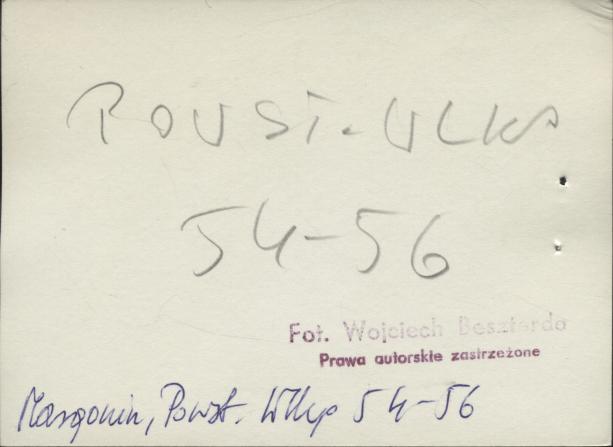 POWST. WLKP
54-56
Fot. Wojciech Beszterda
Prawa autorskie zastrzeżone
Margonin, Powst. Wlkp 54-56